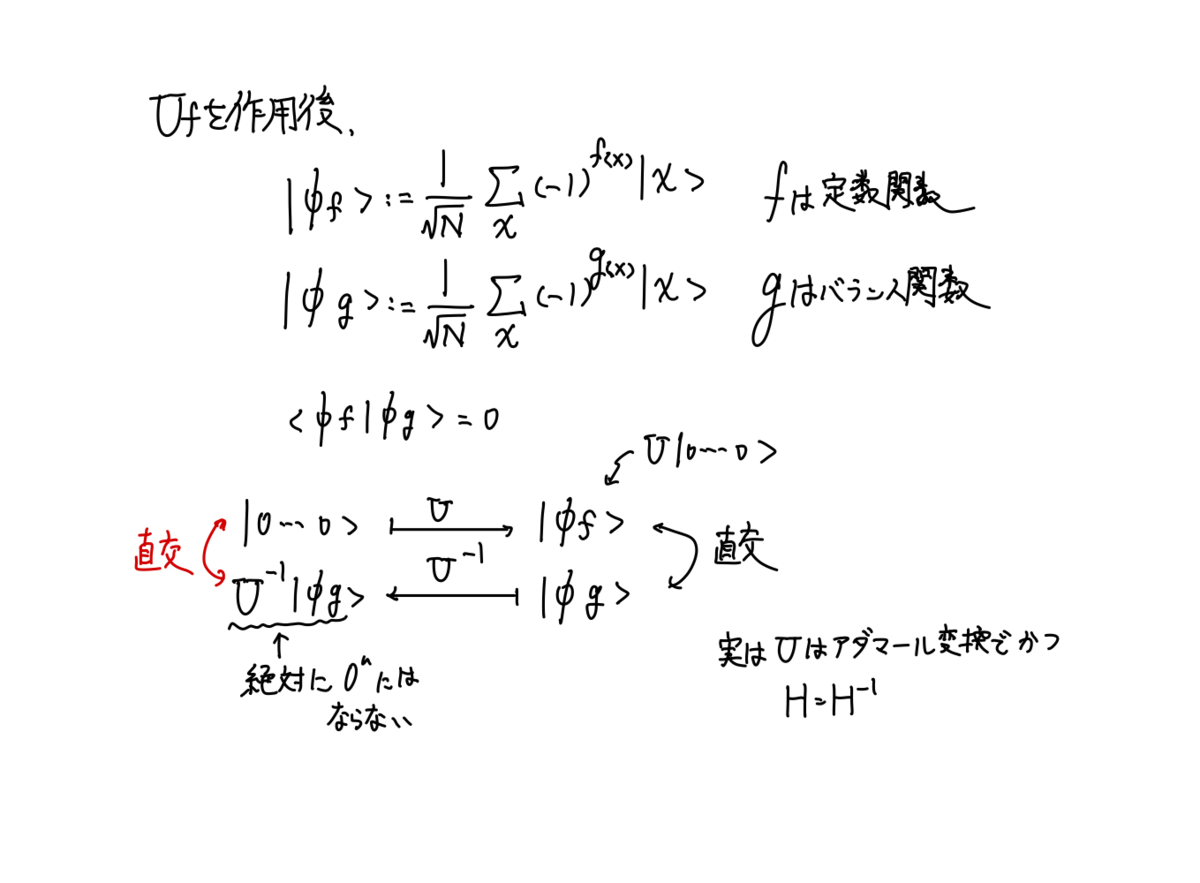 Ufを作用後、
|φf>:= 1/√N Σ_x (-1)^f(x) |x> fは定数関数
|φg>:= 1/√N Σ_x (-1)^g(x) |x> gはバランス関数
<φf|φg>=0
U|0…0>
|0…0> U |φf>
直交 直交
U^-1|φg> U^-1 |φg>
絶対に 0^nには
ならない
実は Uはアダマール変換でかつ
H=H^-1